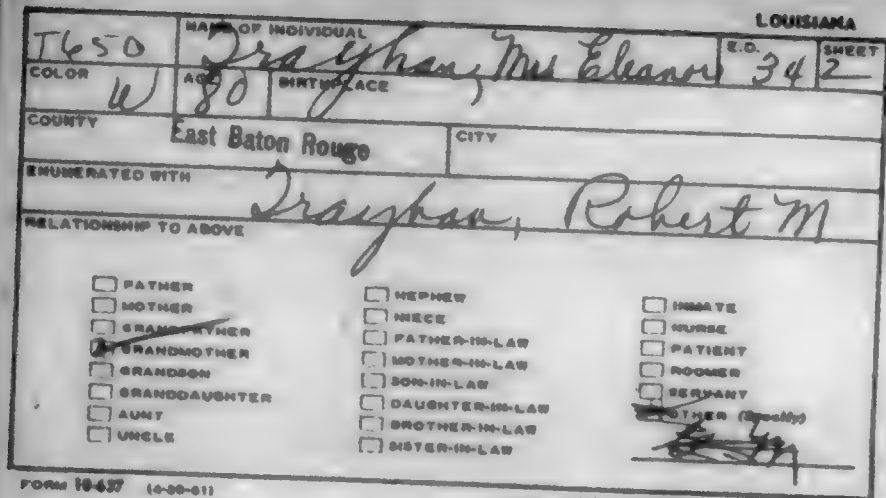 LOUISIANA
T650
NAME OF INDIVIDUAL
Trayhan, Mrs Eleanor
E.D.
34
SHEET
2
COLOR
W
AGE
80
BIRTHPLACE
COUNTY
East Baton Rouge
CITY
ENUMERATED WITH
Trayhan, Robert M
RELATIONSHIP TO ABOVE
FATHER
MOTHER
GRANDFATHER
GRANDMOTHER
GRANDSON
GRANDDAUGHTER
AUNT
UNCLE
NEPHEW
NIECE
FATHER-IN-LAW
MOTHER-IN-LAW
SON-IN-LAW
DAUGHTER-IN-LAW
BROTHER-IN-LAW
SISTER-IN-LAW
INMATE
NURSE
PATIENT
ROOMER
SERVANT
OTHER (Specify)
FORM 10-637 (4-20-61)